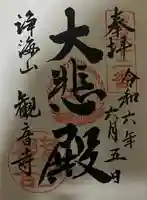 奉拝
令和六年六月五日
大悲殿
浄海山
観音寺